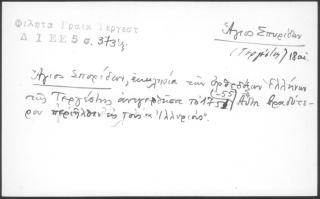 Φιλετα Γραικ Τεργεστ
Δ 1 ΕΕ 5 σ. 373
Άγιος Σπυρίδων
(Τεργέστη) 18 αι.
Άγιος Σπυρίδων, εκκλησία των ορθοδόξων Ελλήνων
της Τεργέστης ανεγερθείσα το 1753-55
Αύτη βραδύτε-
ρον περιήλθεν εις τους "Ιλλυριούς".